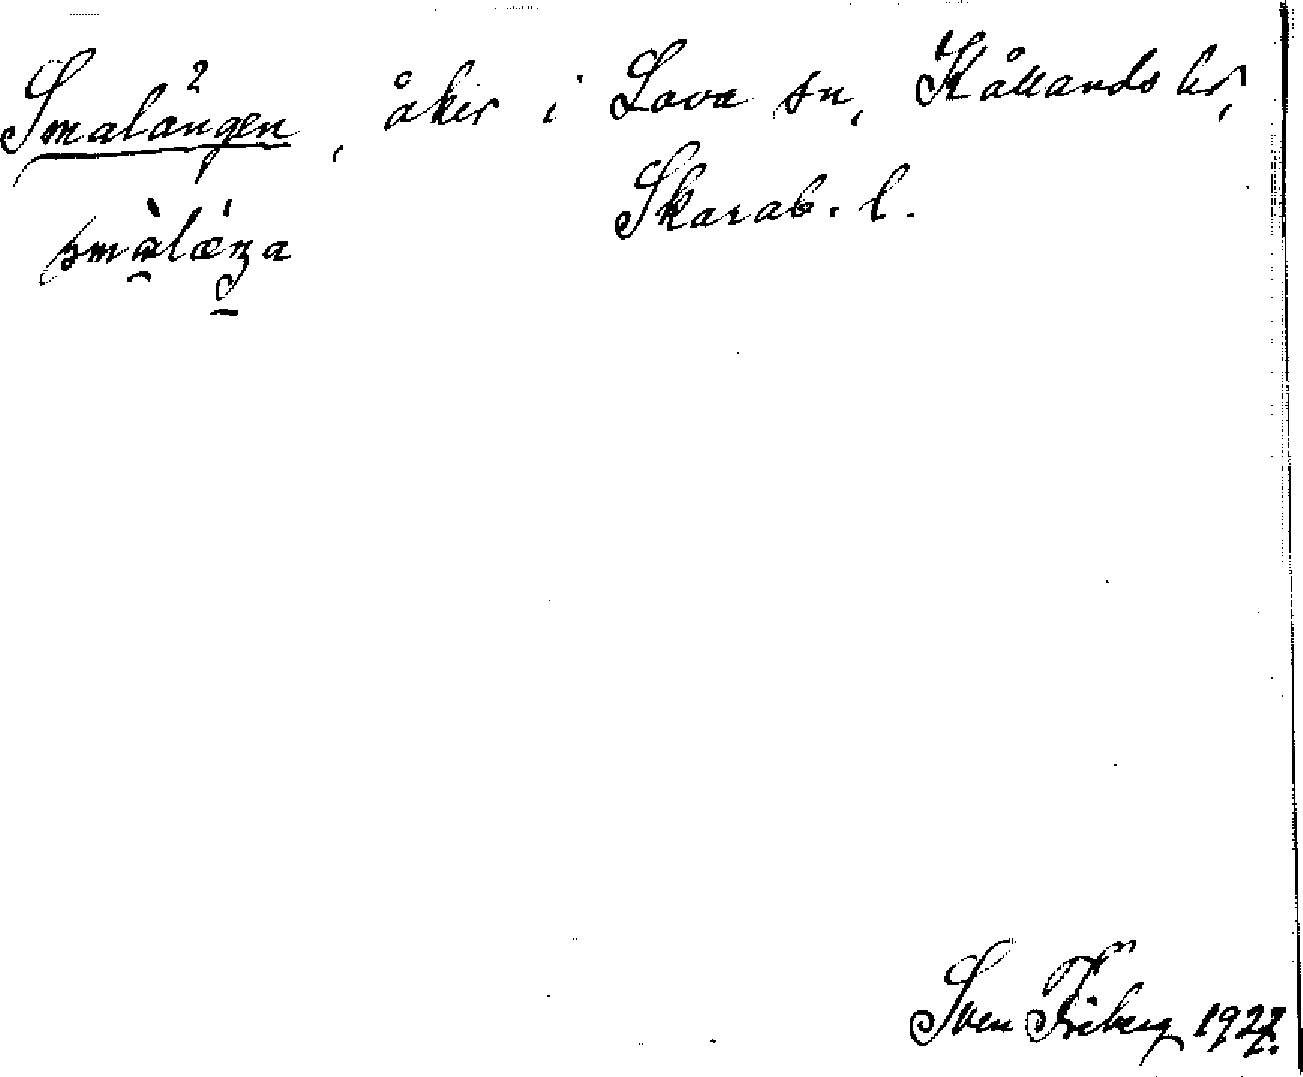 Smalängen, åker i Lova sn, Kållands hd,
Skarab. l.
smàlæŋa
Sven Friberg 1927.